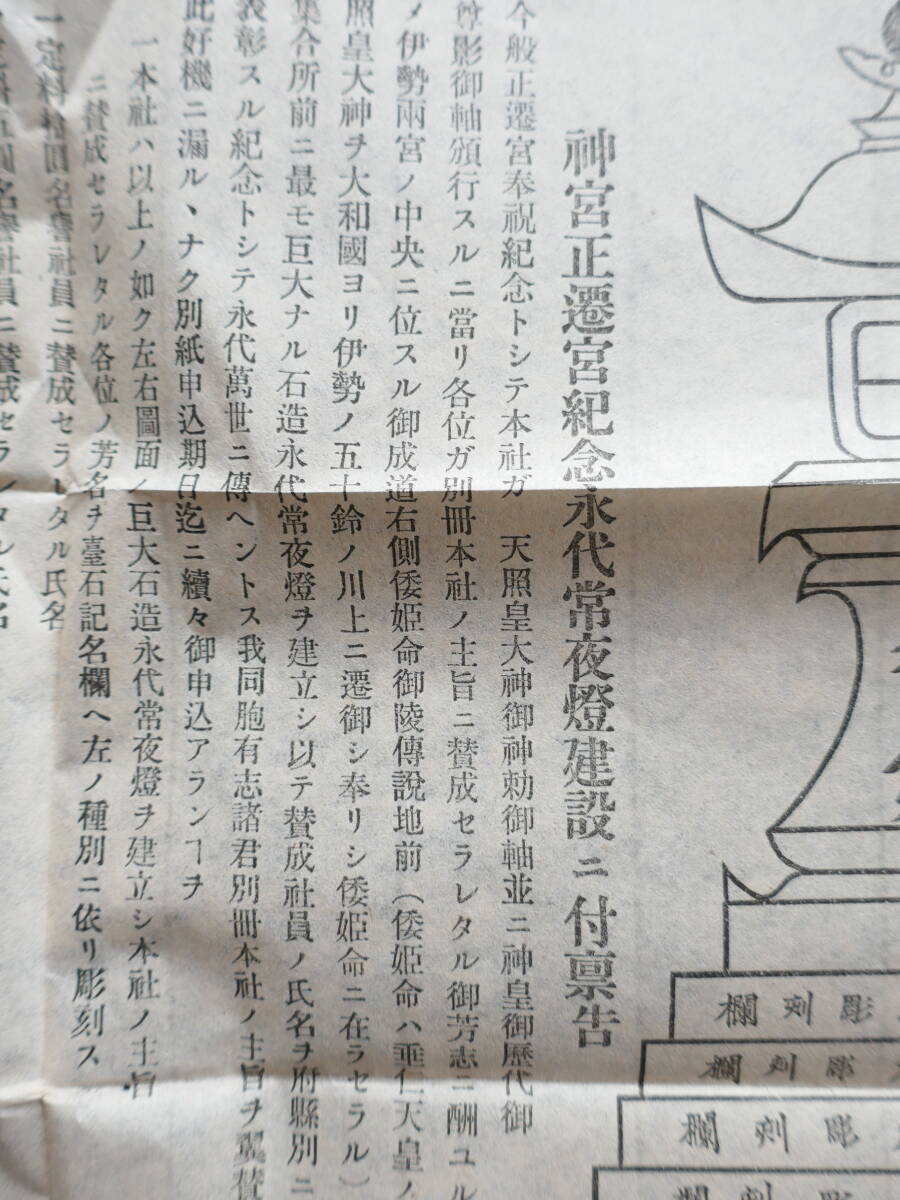 神宮正遷宮紀念永代常夜燈建設ニ付稟告
今般正遷宮奉祝紀念トシテ本社ガ　天照皇大神御神勅御軸並ニ神皇御歷代御
尊影御軸頒行スルニ當リ各位ガ別冊本社ノ主旨ニ賛成セラレタル御芳志ニ酬ユル
メ伊勢兩宮ノ中央ニ位スル御成道右側倭姫命御陵傳說地前（倭姫命ハ垂仁天皇ノ
照皇大神ヲ大和國ヨリ伊勢ノ五十鈴ノ川上ニ遷御シ奉リシ倭姫命ニ在ラセラル）
集合所前ニ最モ巨大ナル石造永代常夜燈ヲ建立シ以テ賛成社員ノ氏名ヲ府縣別ニ
表彰スル紀念トシテ永代萬世ニ傳ヘントス我同胞有志諸君別冊本社ノ主旨ヲ翼賛
此好機ニ漏ルヽナク別紙申込期日迄ニ續々御申込アランヿヲ
一本社ハ以上ノ如ク左右圖面ノ巨大石造永代常夜燈ヲ建立シ本社ノ主旨
ニ賛成セラレタル各位ノ芳名ヲ臺石記名欄ヘ左ノ種別ニ依リ彫刻ス
一定料拾圓名譽社員ニ賛成セラレタル氏名
一定料五圓名譽社員ニ賛成セラレタル氏名
彫刻欄
彫刻欄
彫刻欄
彫刻欄